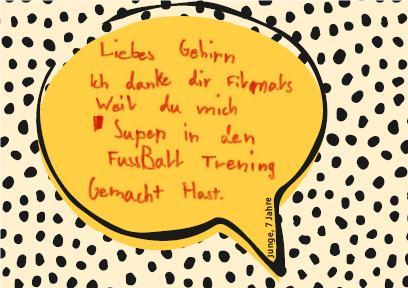 Liebes Gehirn
Ich danke dir Filmals
Weil du mich
Super in den
FussBall Trening
Gemacht Hast.
Junge, 7 Jahre